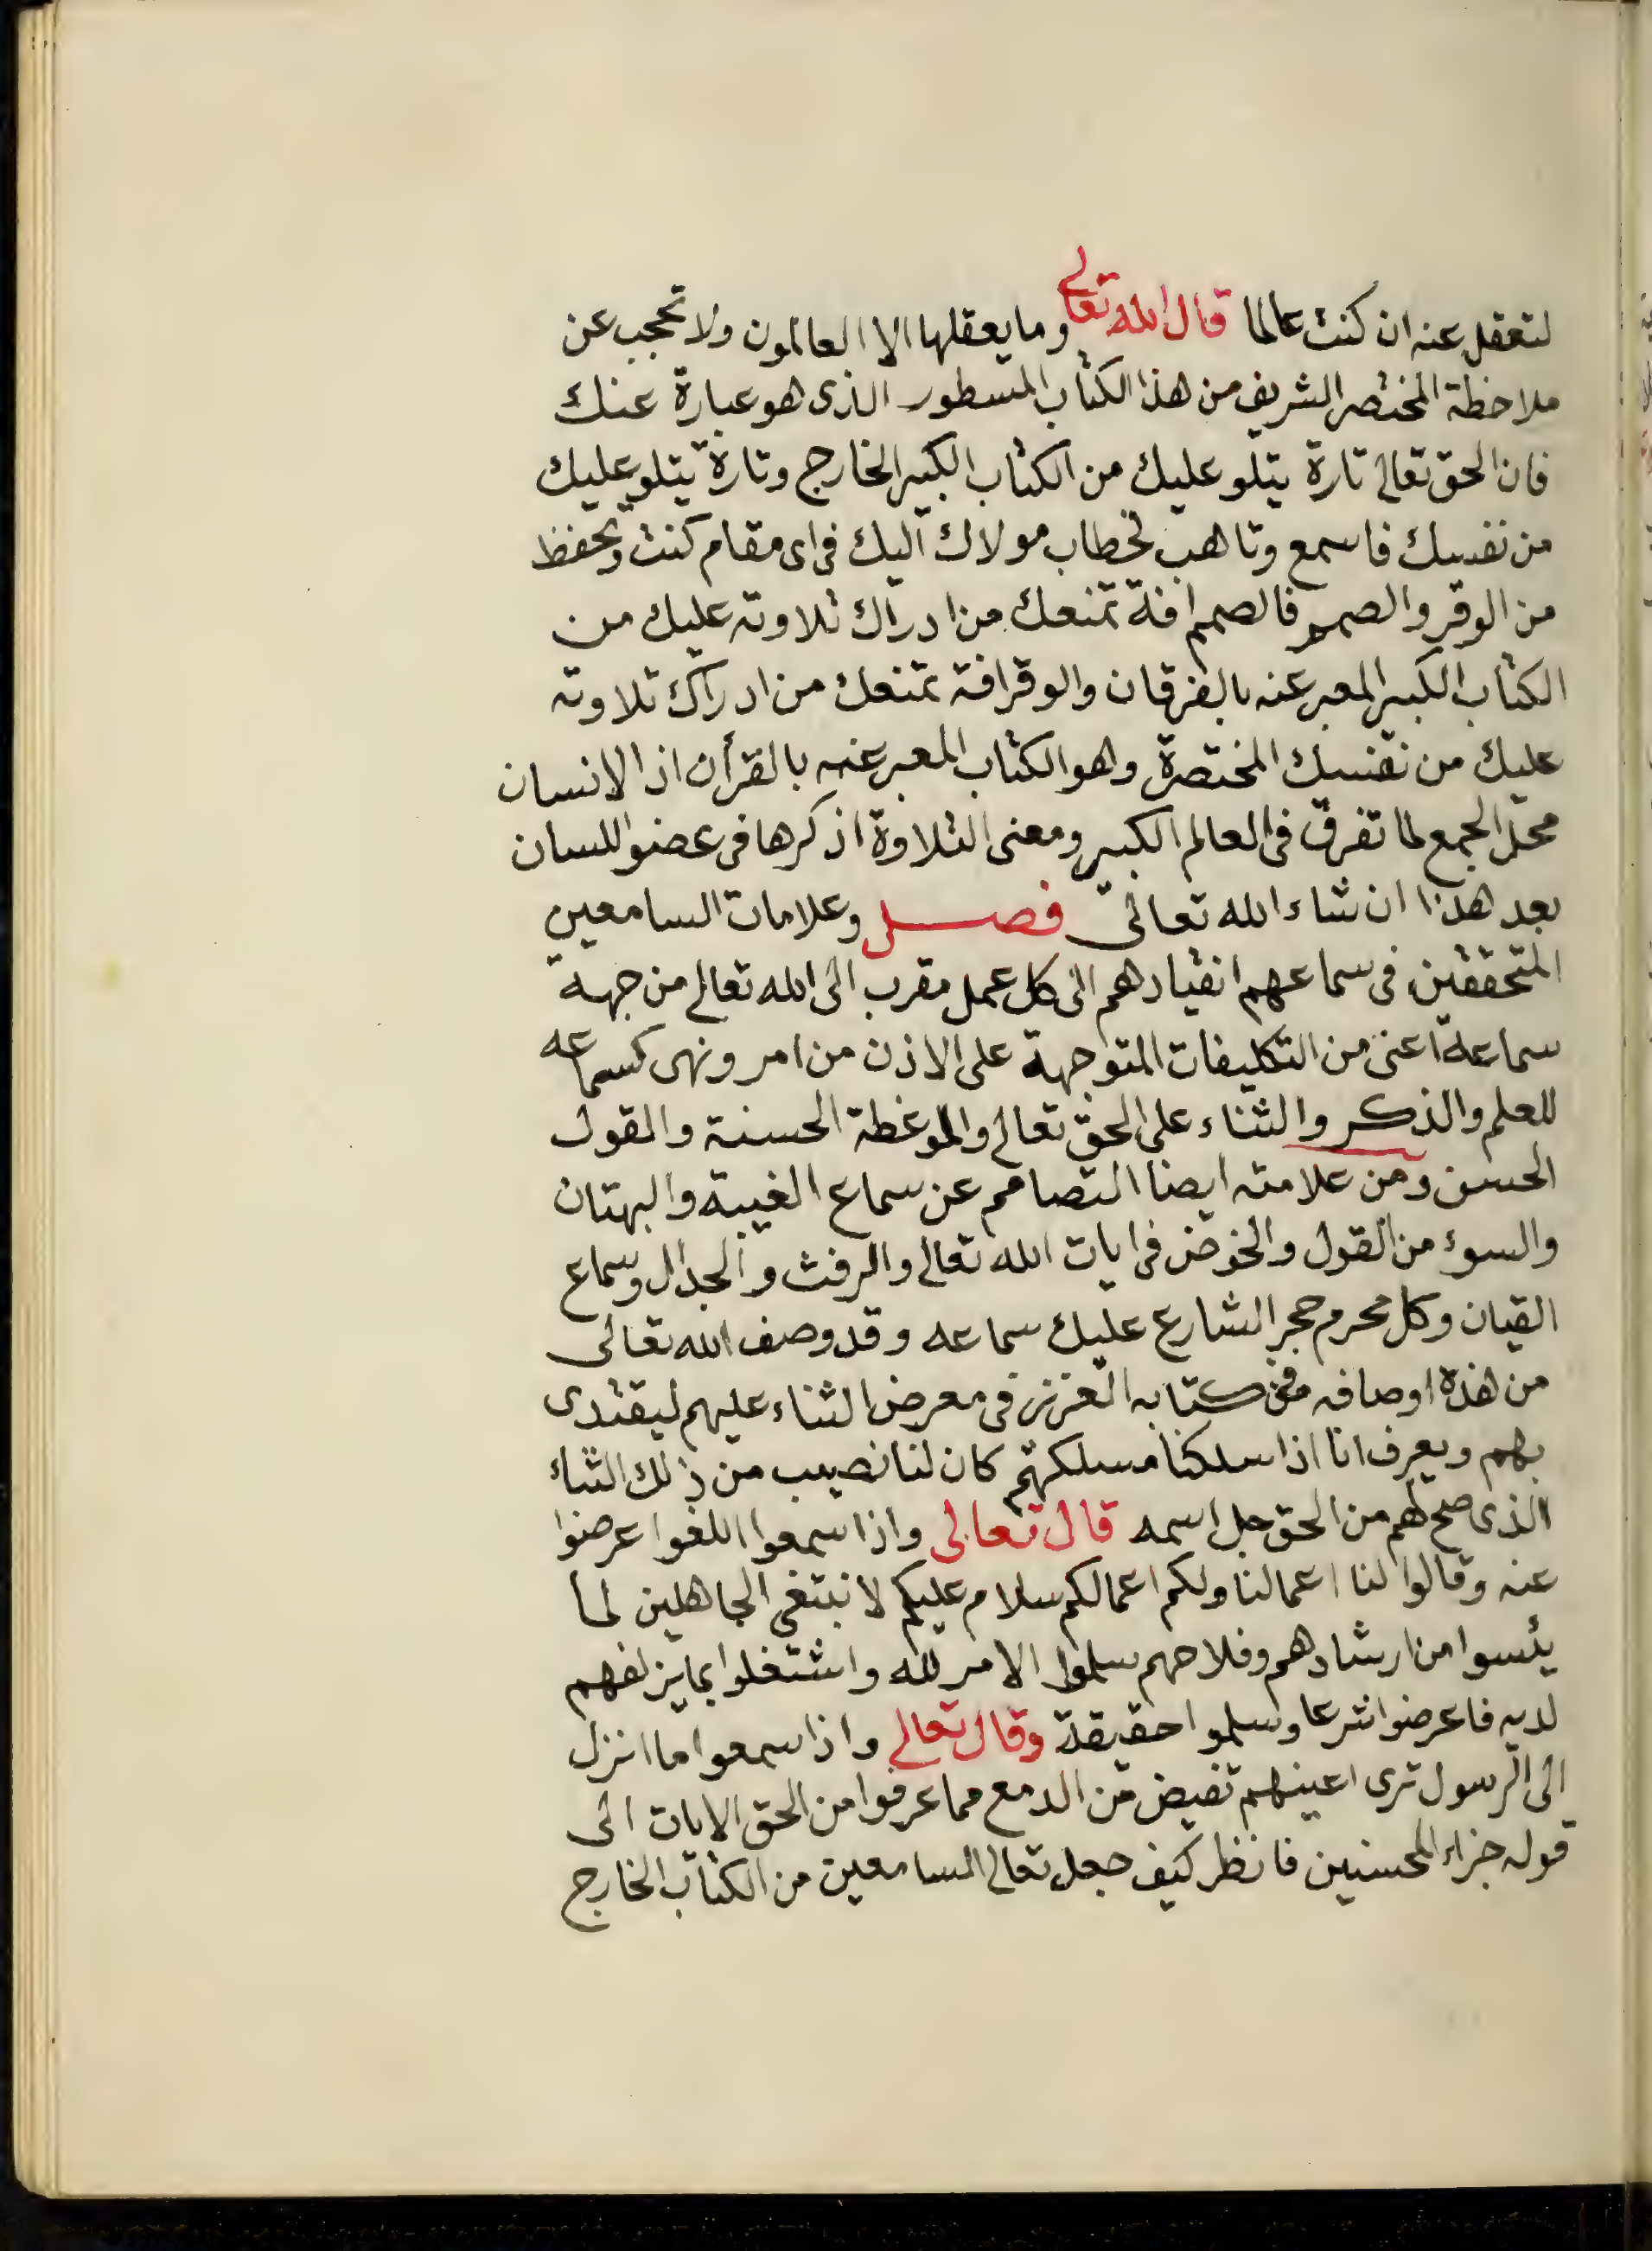 لتعقل عنه ان كنت عالما قال الله تعالى وما يعقلها الا العالمون ولا تحجب عن
ملاحظة المختصر الشريف من هذا الكتاب المسطور الذى هو عبارة عنك
فان الحق تعالى تارة يتلو عليك من الكتاب الكبير الخارج وتارة يتلو عليك
من نفسك فاسمع وتاهب لخطاب مولاك اليك فى اى مقام كنت وتحفظ
من الوقر والصمم فالصمم افة تمنعك من ادراك تلاوته عليك من
الكتاب الكبير المعبر عنه بالفرقان والوقر افة تمنعك من ادراك تلاوته
عليك من نفسك المختصرة وهو الكتاب المعبر عنه بالقرآن اذ الانسان
محل الجمع لما تفرق فى العالم الكبير ومعنى التلاوة اذكرها فى عضو اللسان
بعد هذا ان شاء الله تعالى فصل وعلامات السامعين
المتحققين فى سماعهم انقيادهم الى كل عمل مقرب الى الله تعالى من جهة
سماعه اعنى من التكليفات المتوجهة على الاذن من امر ونهى كسماعه
للعلم والذكر والثناء على الحق تعالى والموعظة الحسنة والقول
الحسن ومن علامته ايضا التصامم عن سماع الغيبة والبهتان
والسوء من القول والخوض فى ايات الله تعالى والرفث والجدال وسماع
القيان وكل محرم حجر الشارع عليك سماعه وقد وصف الله تعالى
من هذة اوصافه فى كتابه العزيز فى معرض الثناء عليهم ليقتدى
بهم ويعرف انا اذا سلكنا مسلكهم كان لنا نصيب من ذلك الثناء
الذى صح لهم من الحق جل اسمه قال تعالى واذا سمعوا اللغو اعرضوا
عنه وقالوا لنا اعمالنا ولكم اعمالكم سلام عليكم لا نبتغى الجاهلين لما
يئسوا من ارشادهم وفلاحهم سلموا الامر لله واشتغلوا بما يزلفهم
لديه فاعرضوا شرعا وسلموا حقيقة وقال تعالى واذا سمعوا ما انزل
الى الرسول ترى اعينهم تفيض من الدمع مما عرفوا من الحق الايات الى
قوله جزاء المحسنين فانظر كيف جعل تعالى السامعين من الكتاب الخارج